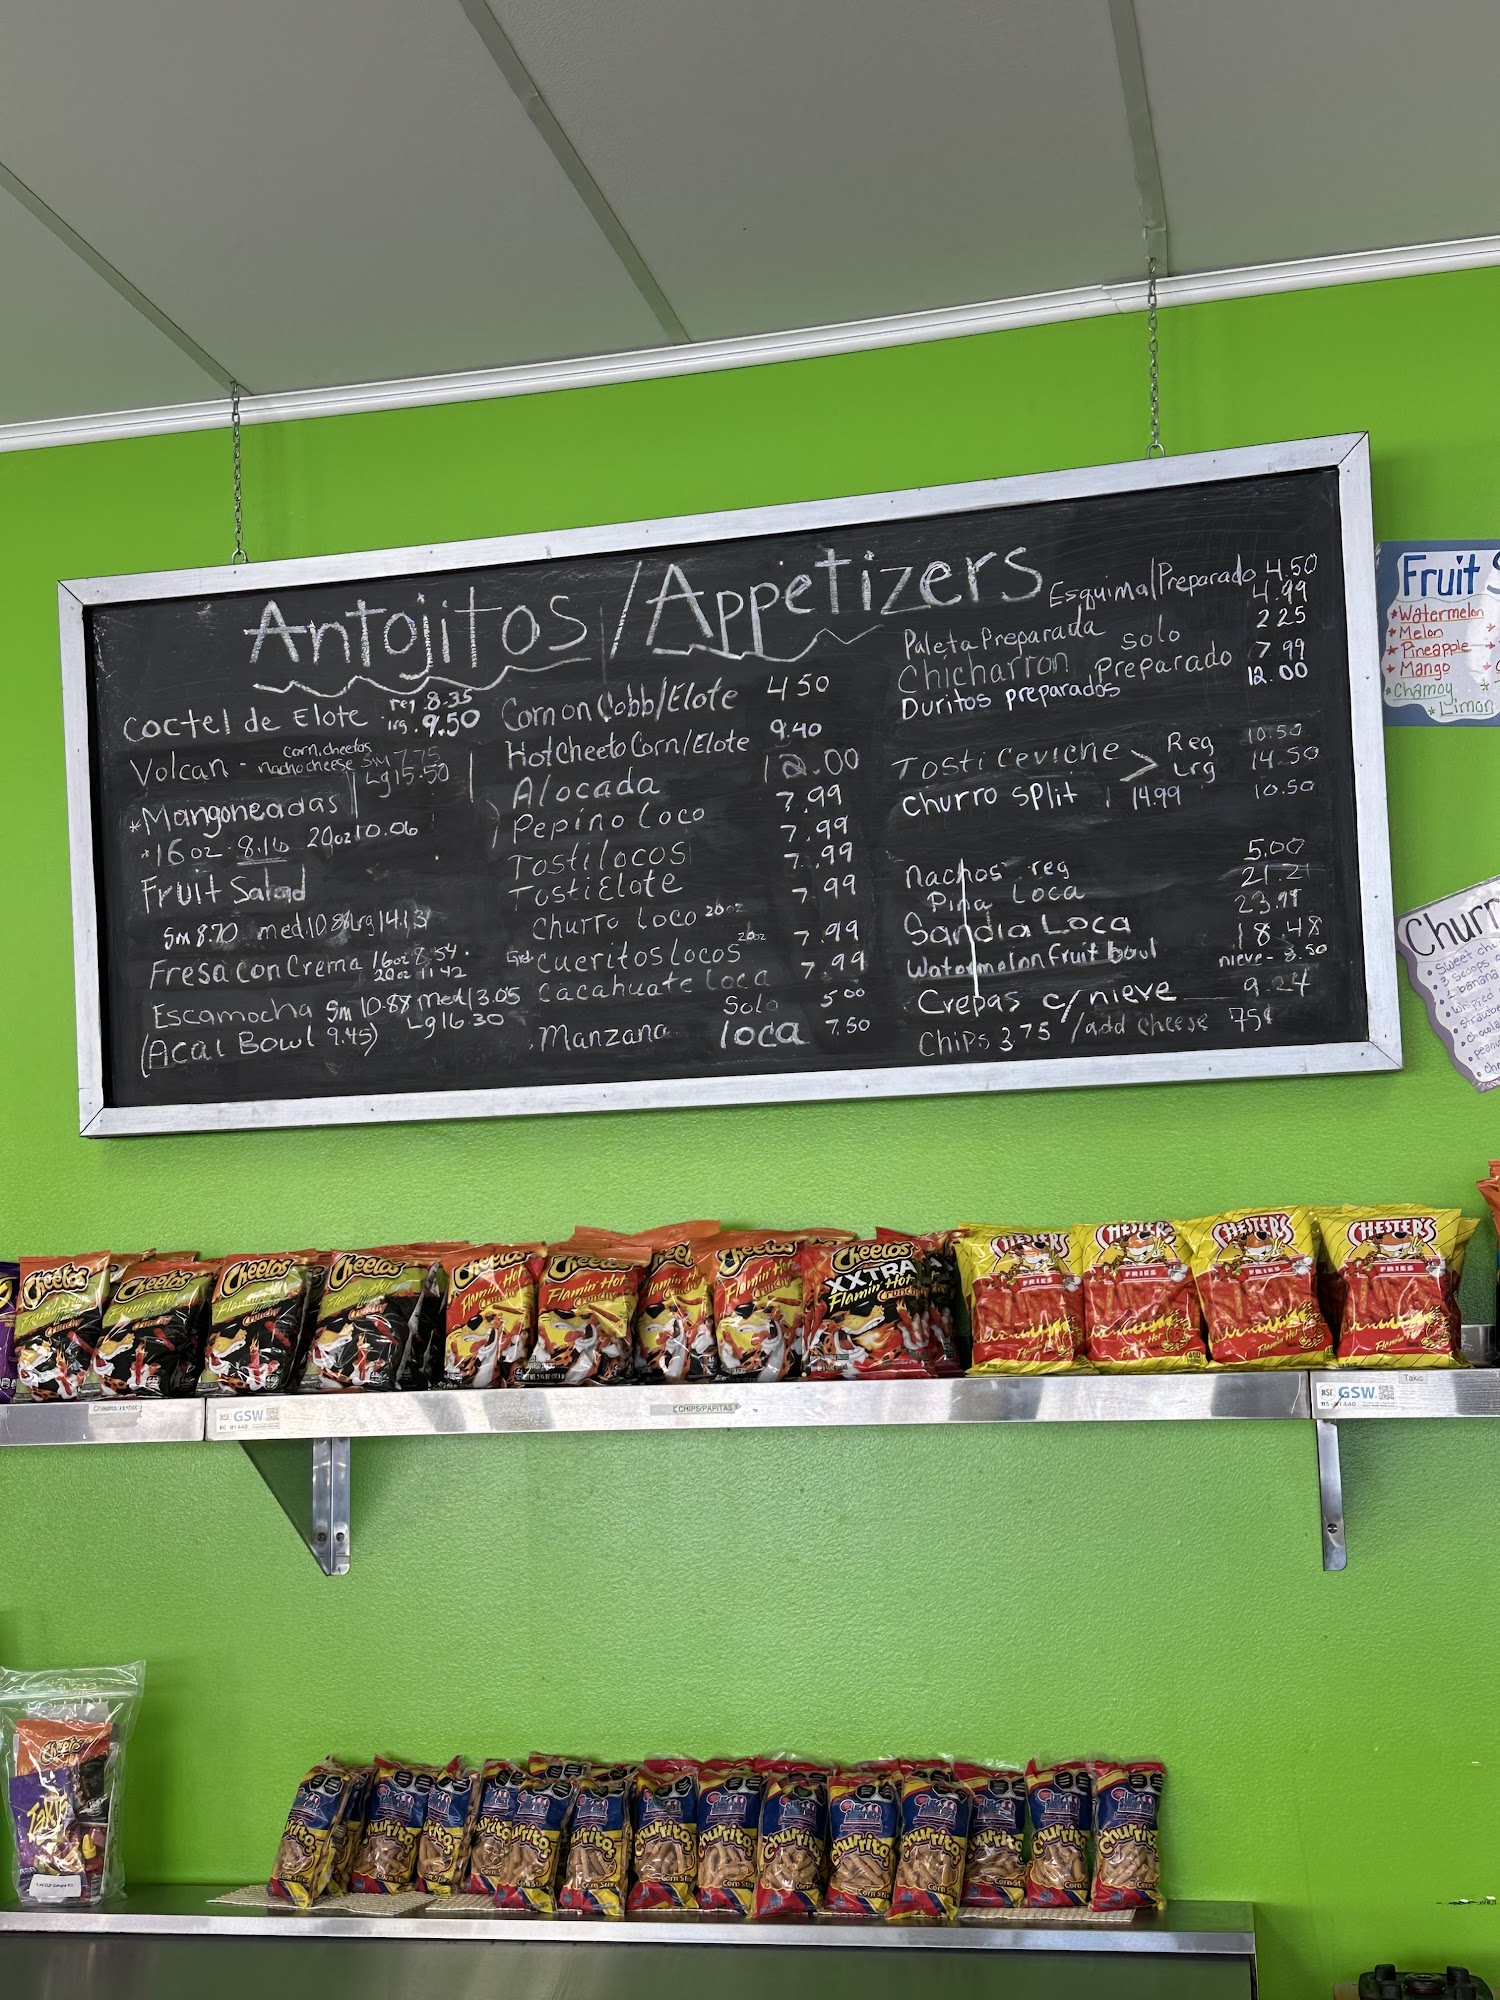 Antojitos/Appetizers
Coctel de Elote reg 8.35
lrg. 9.50
Volcan - corn, cheetos
nacho cheese Sm 7.75
Lg 15.50
*Mangoneadas
*16 oz 8.16 20oz 10.06
Fruit Salad
Sm 8.70 med. 10.88 Lrg 14.13
Fresa con Crema 16oz 8.54.
20oz 11.42
Escamocha Sm 10.88 Med 13.05
Lg 16.30
(Acai Bowl 9.45)
Corn on Cobb/Elote 4.50
Hot Cheeto Corn/Elote 9.40
Alocada 12.00
Pepino Loco 7.99
Tostilocos 7.99
TostiElote 7.99
Churro Loco 20oz 7.99
cueritos Locos 20oz 7.99
Cacahuate Loca 7.99
Manzana Solo 5.00
loca 7.50
Esquimal Preparado 4.50
Paleta Preparada 4.99
Chicharron Solo 2.25
preparado 7.99
Duritos preparados 12.00
Tosti Ceviche > Reg 10.50
Lrg 14.50
Churro Split 14.99 10.50
Nachos reg 5.00
Pina Loca 21.21
Sandia Loca 23.99
Watermelon Fruit bowl 18.48
Crepas c/nieve nieve- 8.50
9.24
Chips 3.75 /add cheese 75¢
Fruit S
*Watermelon
*Melon
*Pineapple
*Mango
*Chamoy
*Limon
Churr
Sweet
Scoops
banana
whipped
Cheetos
Flamin' Hot
Crunchy
Cheetos
XXTRA
Flamin' Hot
Crunchy
CHESTER'S
FRIES
Flamin' Hot
CHESTER'S
FRIES
CHESTER'S
FRIES
CHESTER'S
FRIES
Cheetos xxxhot
NSF GSW
CHIPS/PAPITAS
NSF GSW
Takis
Cheetos
Takis
Churritos
Corn Sticks